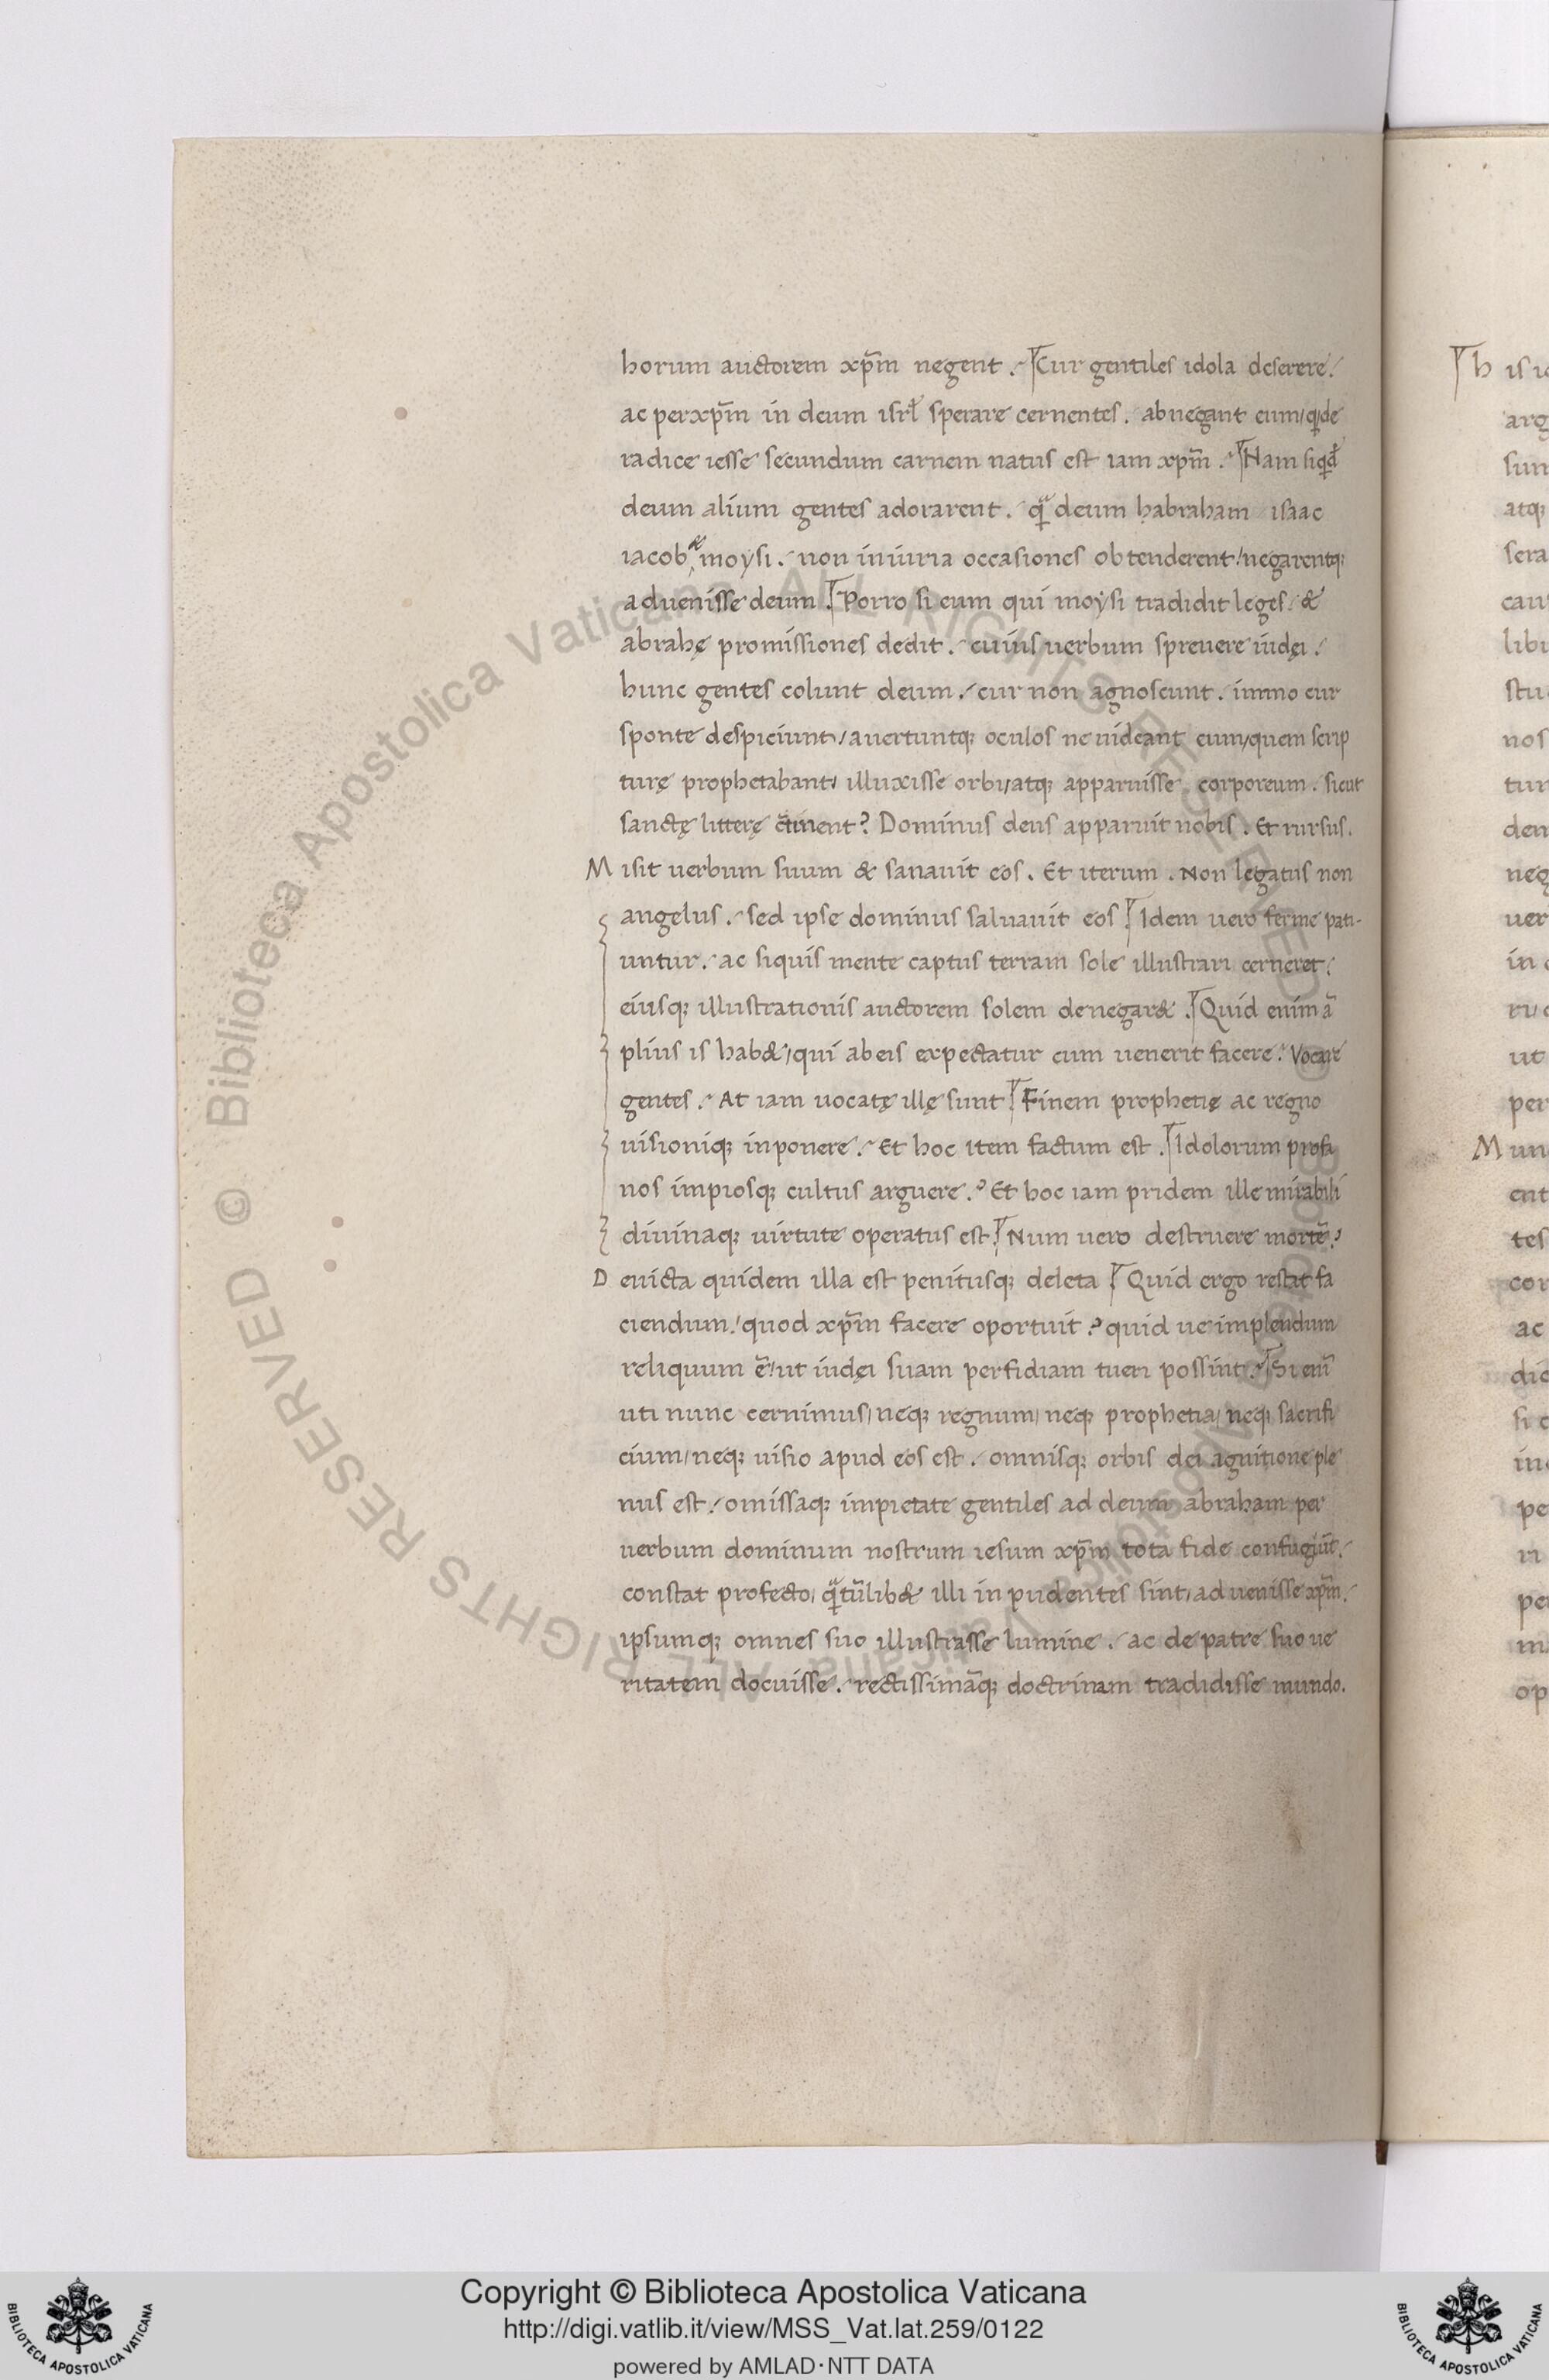 horum auctorem xp̃m negent. Cur gentiles idola deserere.
ac per xp̃m in deum isrł sperare cernentes. abnegant eum/ qͥ de
radice iesse secundum carnem natus est iam xpm̃. Nam siqd̃
deum alium gentes adorarent. qͣ̃ deum habraham isaac
iacob & moysi. non iniuria occasiones obtenderent/ negarentq;
advenisse deum. Porro si eum qui moysi tradidit leges. &
abrahę promissiones dedit. cuius verbum sprevere iudęi.
hunc gentes colunt deum. cur non agnoscunt. immo cur
sponte despiciunt/ avertuntq; oculos ne videant eum/ quem scrip
turę prophetabant/ illuxisse orbi/ atq; apparuisse corporeum. sicut
sanctę litterę c̃tinent? Dominus deus apparuit nobis. Et rursus.
Misit verbum suum & sanavit eos. Et iterum. Non legatus non
angelus. sed ipse dominus salvavit eos. Idem vero ferme pati-
untur. ac siquis mente captus terram sole illustrari cerneret.
eiusq; illustrationis auctorem solem denegar&. Quid enim ã
plius is hab&/ qui ab eis expectatur cum venerit facere. Vocare
gentes. At iam vocatę illę sunt. Finem prophetię ac regno
visioniq; inponere. Et hoc item factum est. Idolorum profa
nos impiosq; cultus arguere.? Et hoc iam pridem ille mirabili
divinaq; virtute operatus est. Num vero destruere mortẽ?
Devicta quidem illa est penitusq; deleta. Quid ergo restat fa
ciendum. quod xp̃m facere oportuit? quid ve implendum
reliquum ẽ/ ut iudęi suam perfidiam tueri possint. Si enĩ
uti nunc cernimus/ neq; regnum/ neq; prophetia/ neq; sacrifi
cium/ neq; visio apud eos est. omnisq; orbis dei agnitione ple
nus est. omissaq; impietate gentiles ad deum abraham per
verbum dominum nostrum iesum xp̃m tota fide confugiũt.
constat profecto/ qͣ̃tũlib& illi inpudentes sint/ advenisse xp̃m.
ipsumq; omnes suo illustrasse lumine. ac de patre suo ve
ritatem docuisse. rectissimãq; doctrinam tradidisse mundo.
Copyright © Biblioteca Apostolica Vaticana
http://digi.vatlib.it/view/MSS_Vat.lat.259/0122
powered by AMLAD·NTT DATA